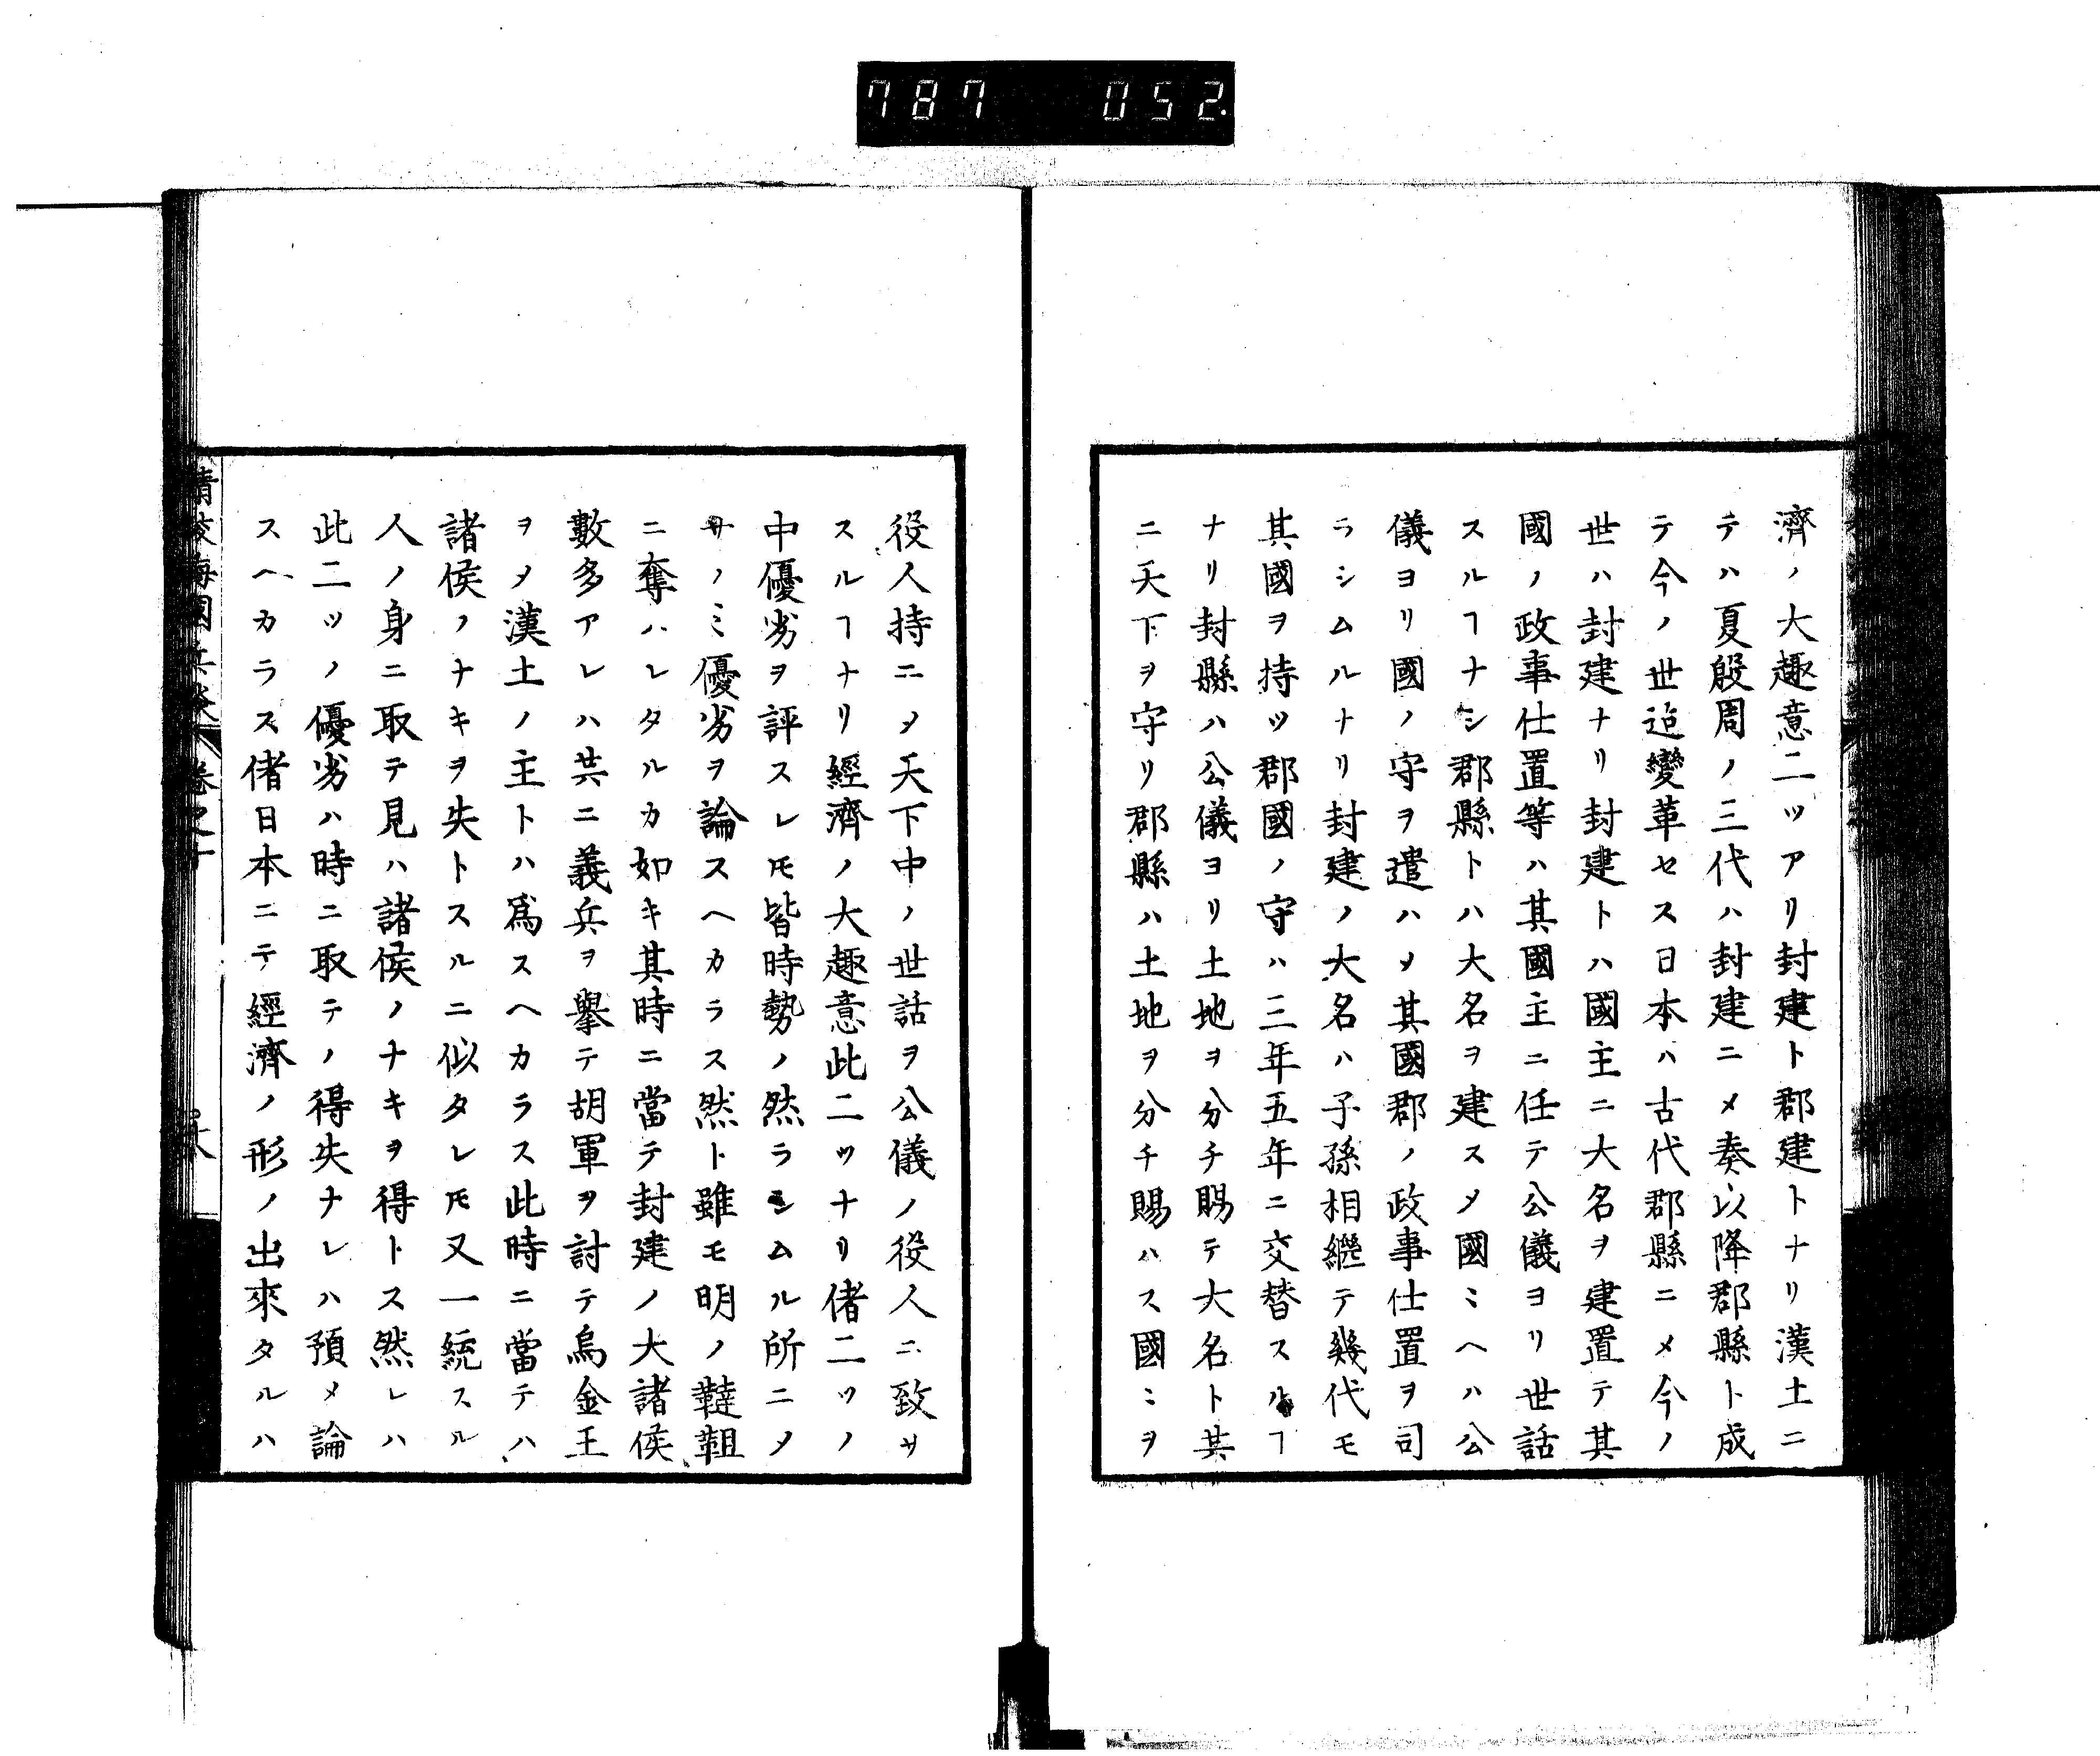 787 052
濟ノ大趣意二ツアリ封建ト郡建トナリ漢土ニ
テハ夏殷周ノ三代ハ封建ニメ秦以降郡縣ト成
テ今ノ世迄變革セス日本ハ古代郡縣ニメ今ノ
世ハ封建ナリ封建トハ國主ニ大名ヲ建置テ其
國ノ政事仕置等ハ其國主ニ任テ公儀ヨリ世話
スルヿナシ郡縣トハ大名ヲ建スメ國ミヘハ公
儀ヨリ國ノ守ヲ遣ハメ其國郡ノ政事仕置ヲ司
ラシムルナリ封建ノ大名ハ子孫相繼テ幾代モ
其國ヲ持ツ郡國ノ守ハ三年五年ニ交替スルヿ
ナリ封縣ハ公儀ヨリ土地ヲ分チ賜テ大名ト共
ニ天下ヲ守リ郡縣ハ土地ヲ分チ賜ハス國ミヲ
役人持ニメ天下中ノ世話ヲ公儀ノ役人ニ致サ
スルヿナリ經濟ノ大趣意此二ツナリ偖二ツノ
中優劣ヲ評スレ𪜈皆時勢ノ然ラシムル所ニメ
サノミ優劣ヲ論スヘカラス然ト雖モ明ノ韃靼
ニ奪ハレタルカ如キ其時ニ當テ封建ノ大諸侯
數多アレハ共ニ義兵ヲ擧テ胡軍ヲ討テ烏金王
ヲメ漢土ノ主トハ爲スヘカラス此時ニ當テハ
諸侯ノナキヲ失トスルニ似タレ𪜈又一統スル
人ノ身ニ取テ見ハ諸侯ノナキヲ得トス然レハ
此二ツノ優劣ハ時ニ取テノ得失ナレハ預メ論
スヘカラス偖日本ニテ經濟ノ形ノ出來タルハ
精校海國兵談 卷之十